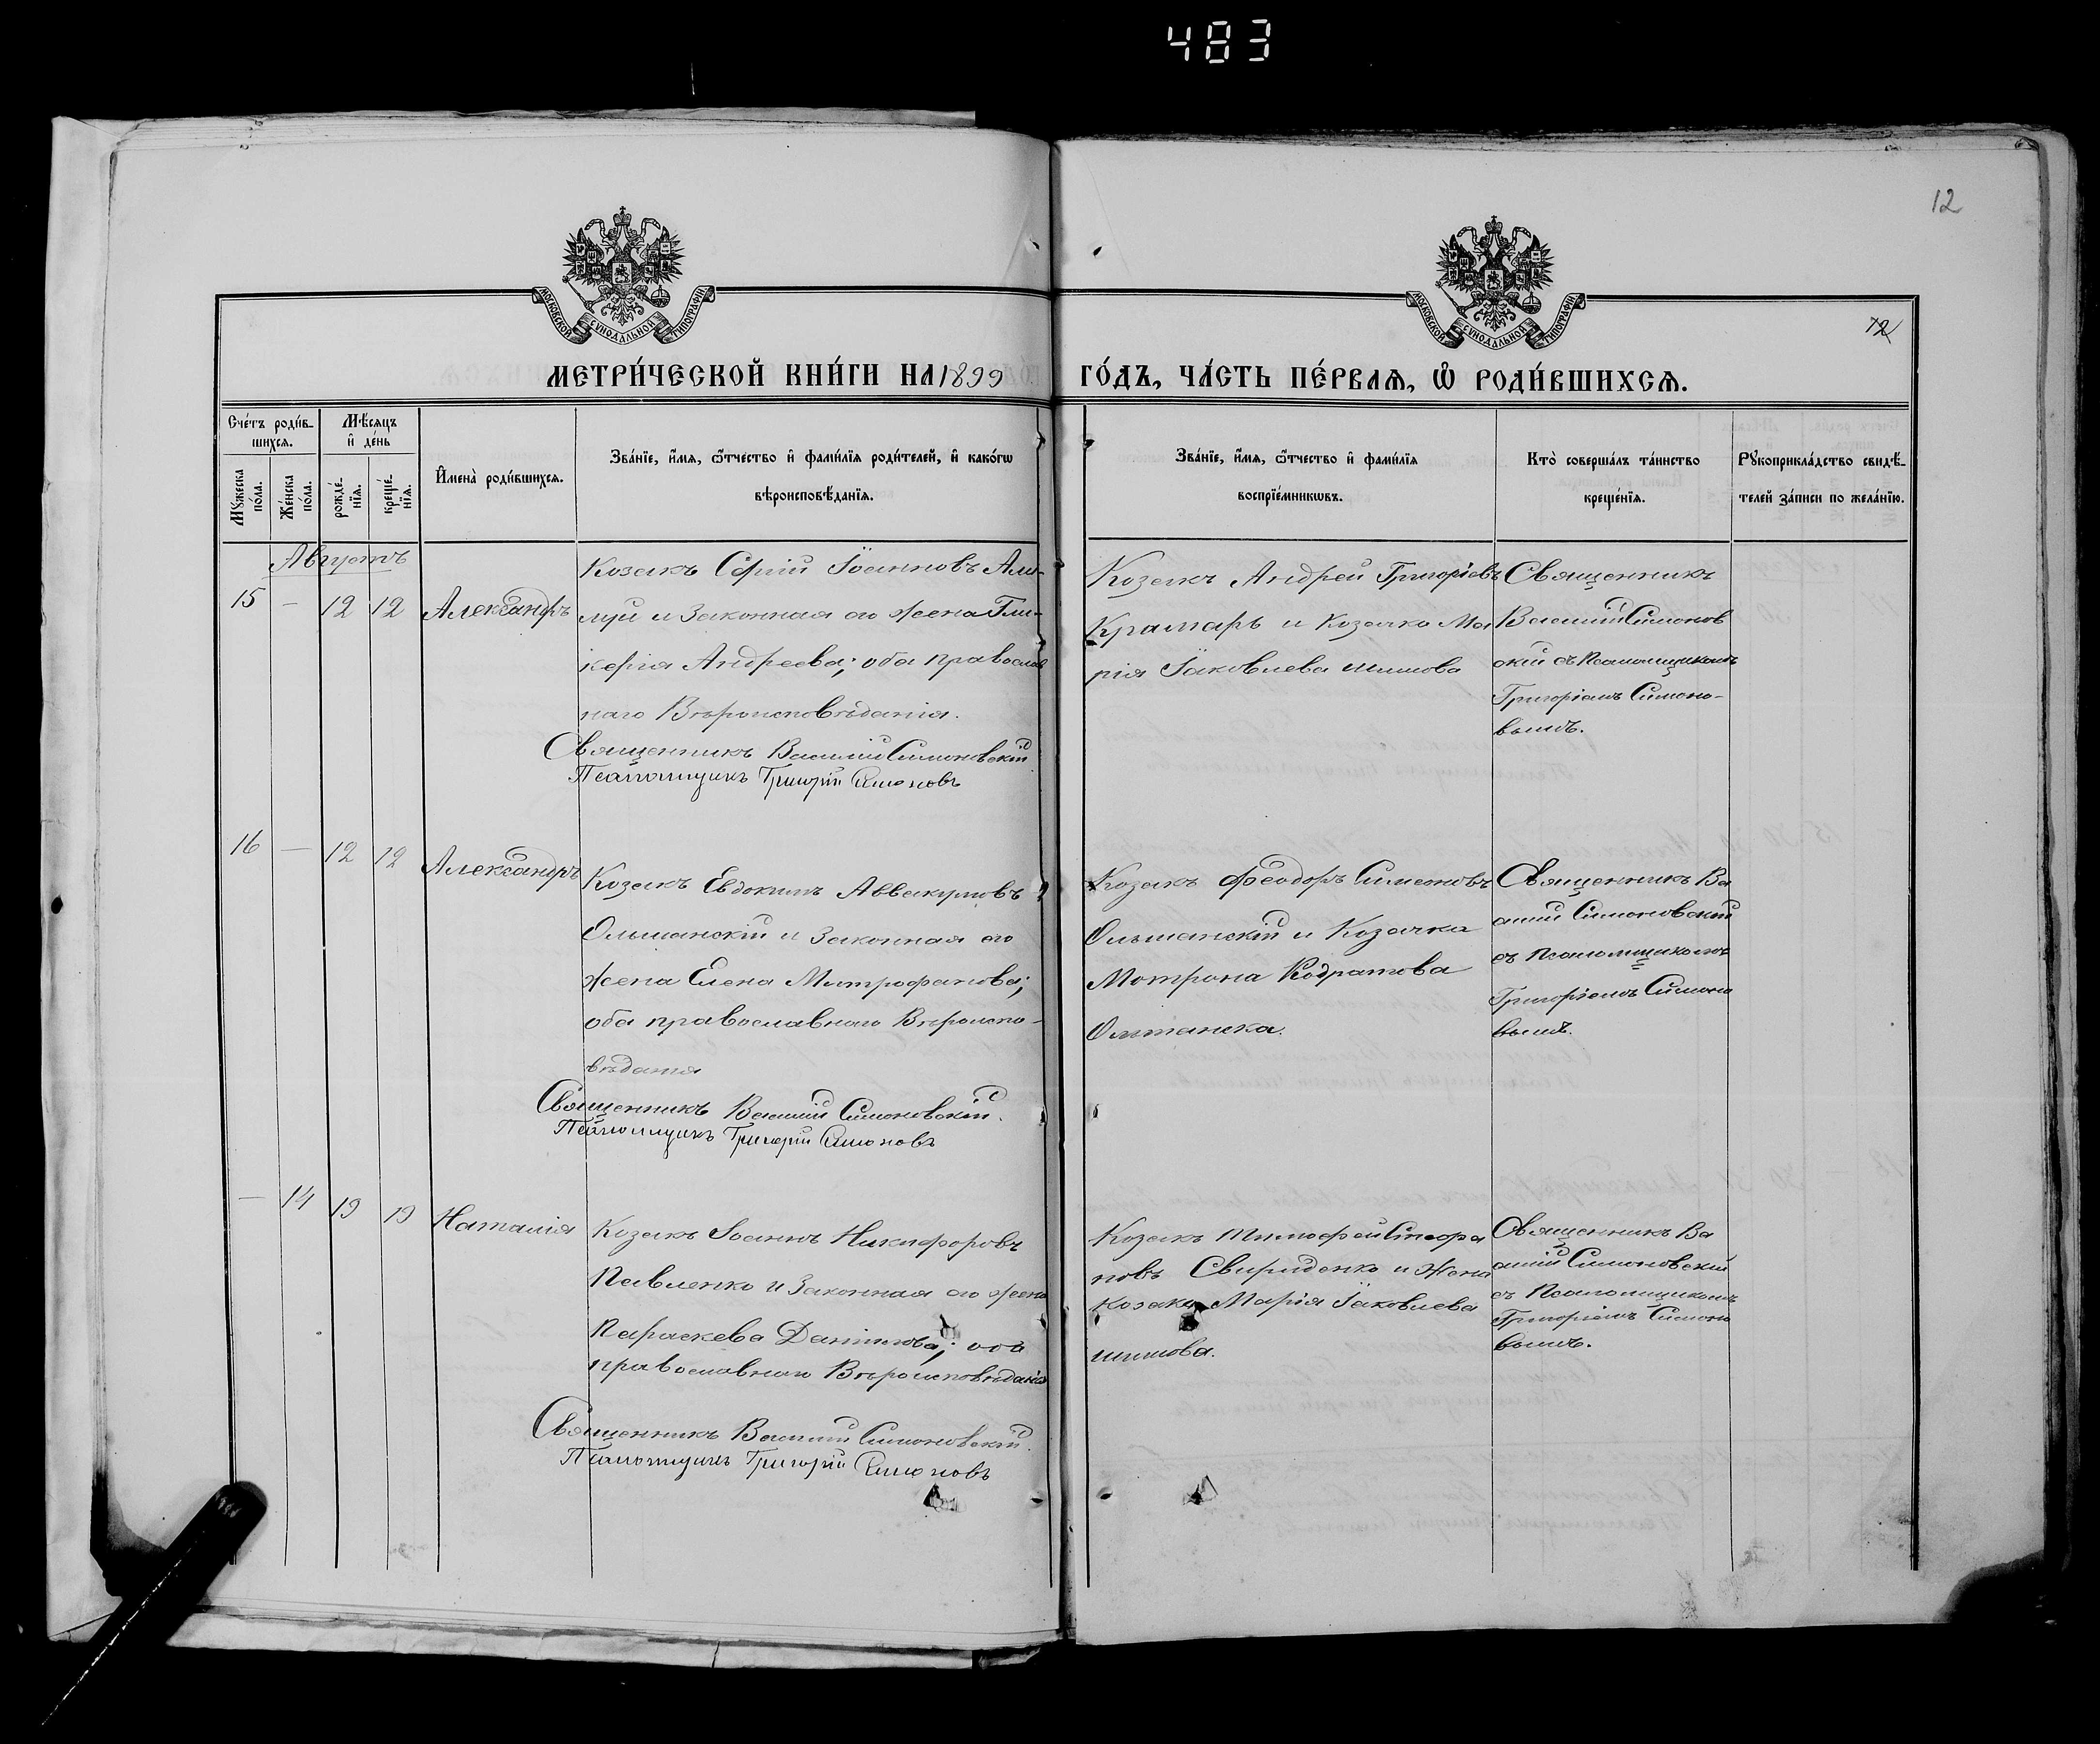 483
12
12
МОСКОВСКОЙ СУНОДАЛЬНОЙ ТИПОГРАФІИ
МОСКОВСКОЙ СУНОДАЛЬНОЙ ТИПОГРАФІИ
МЕТРИ́ЧЕСКОЙ КНИ́ГИ НА 1899 ГО́ДЪ, ЧА́СТЬ ПЕ́РВАѦ, Ѽ РОДИ́ВШИХСѦ.
Сче́тъ роди́в-
шихсѧ.
Мꙋжеска по́ла.
Же́нска по́ла.
Мѣ́сяцъ
и҆ де́нь
рожде́-
нїѧ.
креще́-
нїѧ.
И҆мена̀ роди́вшихсѧ.
Зва́нїе, и҆́мѧ, ѻ҆́тчество и҆ фами́лїѧ роди́телей, и҆ како́гѡ
вѣроисповѣ́данїѧ.
Зва́нїе, и҆́мѧ, ѻ҆́тчество и҆ фами́лїѧ
воспрїе́мникѡвъ.
Кто̀ соверша́лъ та́инство
креще́нїѧ.
Рꙋкоприкла́дство свидѣ́-
телей за́писи по жела́нїю.
Августъ
15 — 12 12 Александръ
Козакъ Сергій Іоанновъ
и законная его жена Гли-
керія Андреева; оба православ
наго Вѣроисповѣданія.
Священникъ Василій Симоновскій
Псаломщикъ Григорій Симоновъ
Козакъ Андрей Григоріевъ
Крамарь и Козачка Ма
рія Іаковлева
Священникъ
Василій Симонов
скій съ Псаломщикомъ
Григоріемъ Симоно-
вымъ.
16 — 12 12 Александръ
Козакъ Евдокимъ Аввакумовъ
Ольшанскій и законная его
жена Елена Митрофанова;
оба православнаго Вѣроиспо-
вѣданія
Священникъ Василій Симоновскій.
Псаломщикъ Григорій Симоновъ
Козакъ Феодоръ Симеоновъ
Ольшанскій и Козачка
Мотрона Кодратова
Ольшанска.
Священникъ Ва
силій Симоновскій
съ Псаломщикомъ
Григоріемъ Симоно
вымъ.
— 14 19 19 Наталія
Козакъ Іоаннъ Никифоровъ
Павленко и законная его жена
Параскева Даніилова; оба
православнаго Вѣроисповѣданія
Священникъ Василій Симоновскій.
Псаломщикъ Григорій Симоновъ
Козакъ Тимофей Стефа
новъ Свириденко и жена
козака Марія Іаковлева
Священникъ Ва
силій Симоновскій
съ Псаломщикомъ
Григоріемъ Симоно
вымъ.